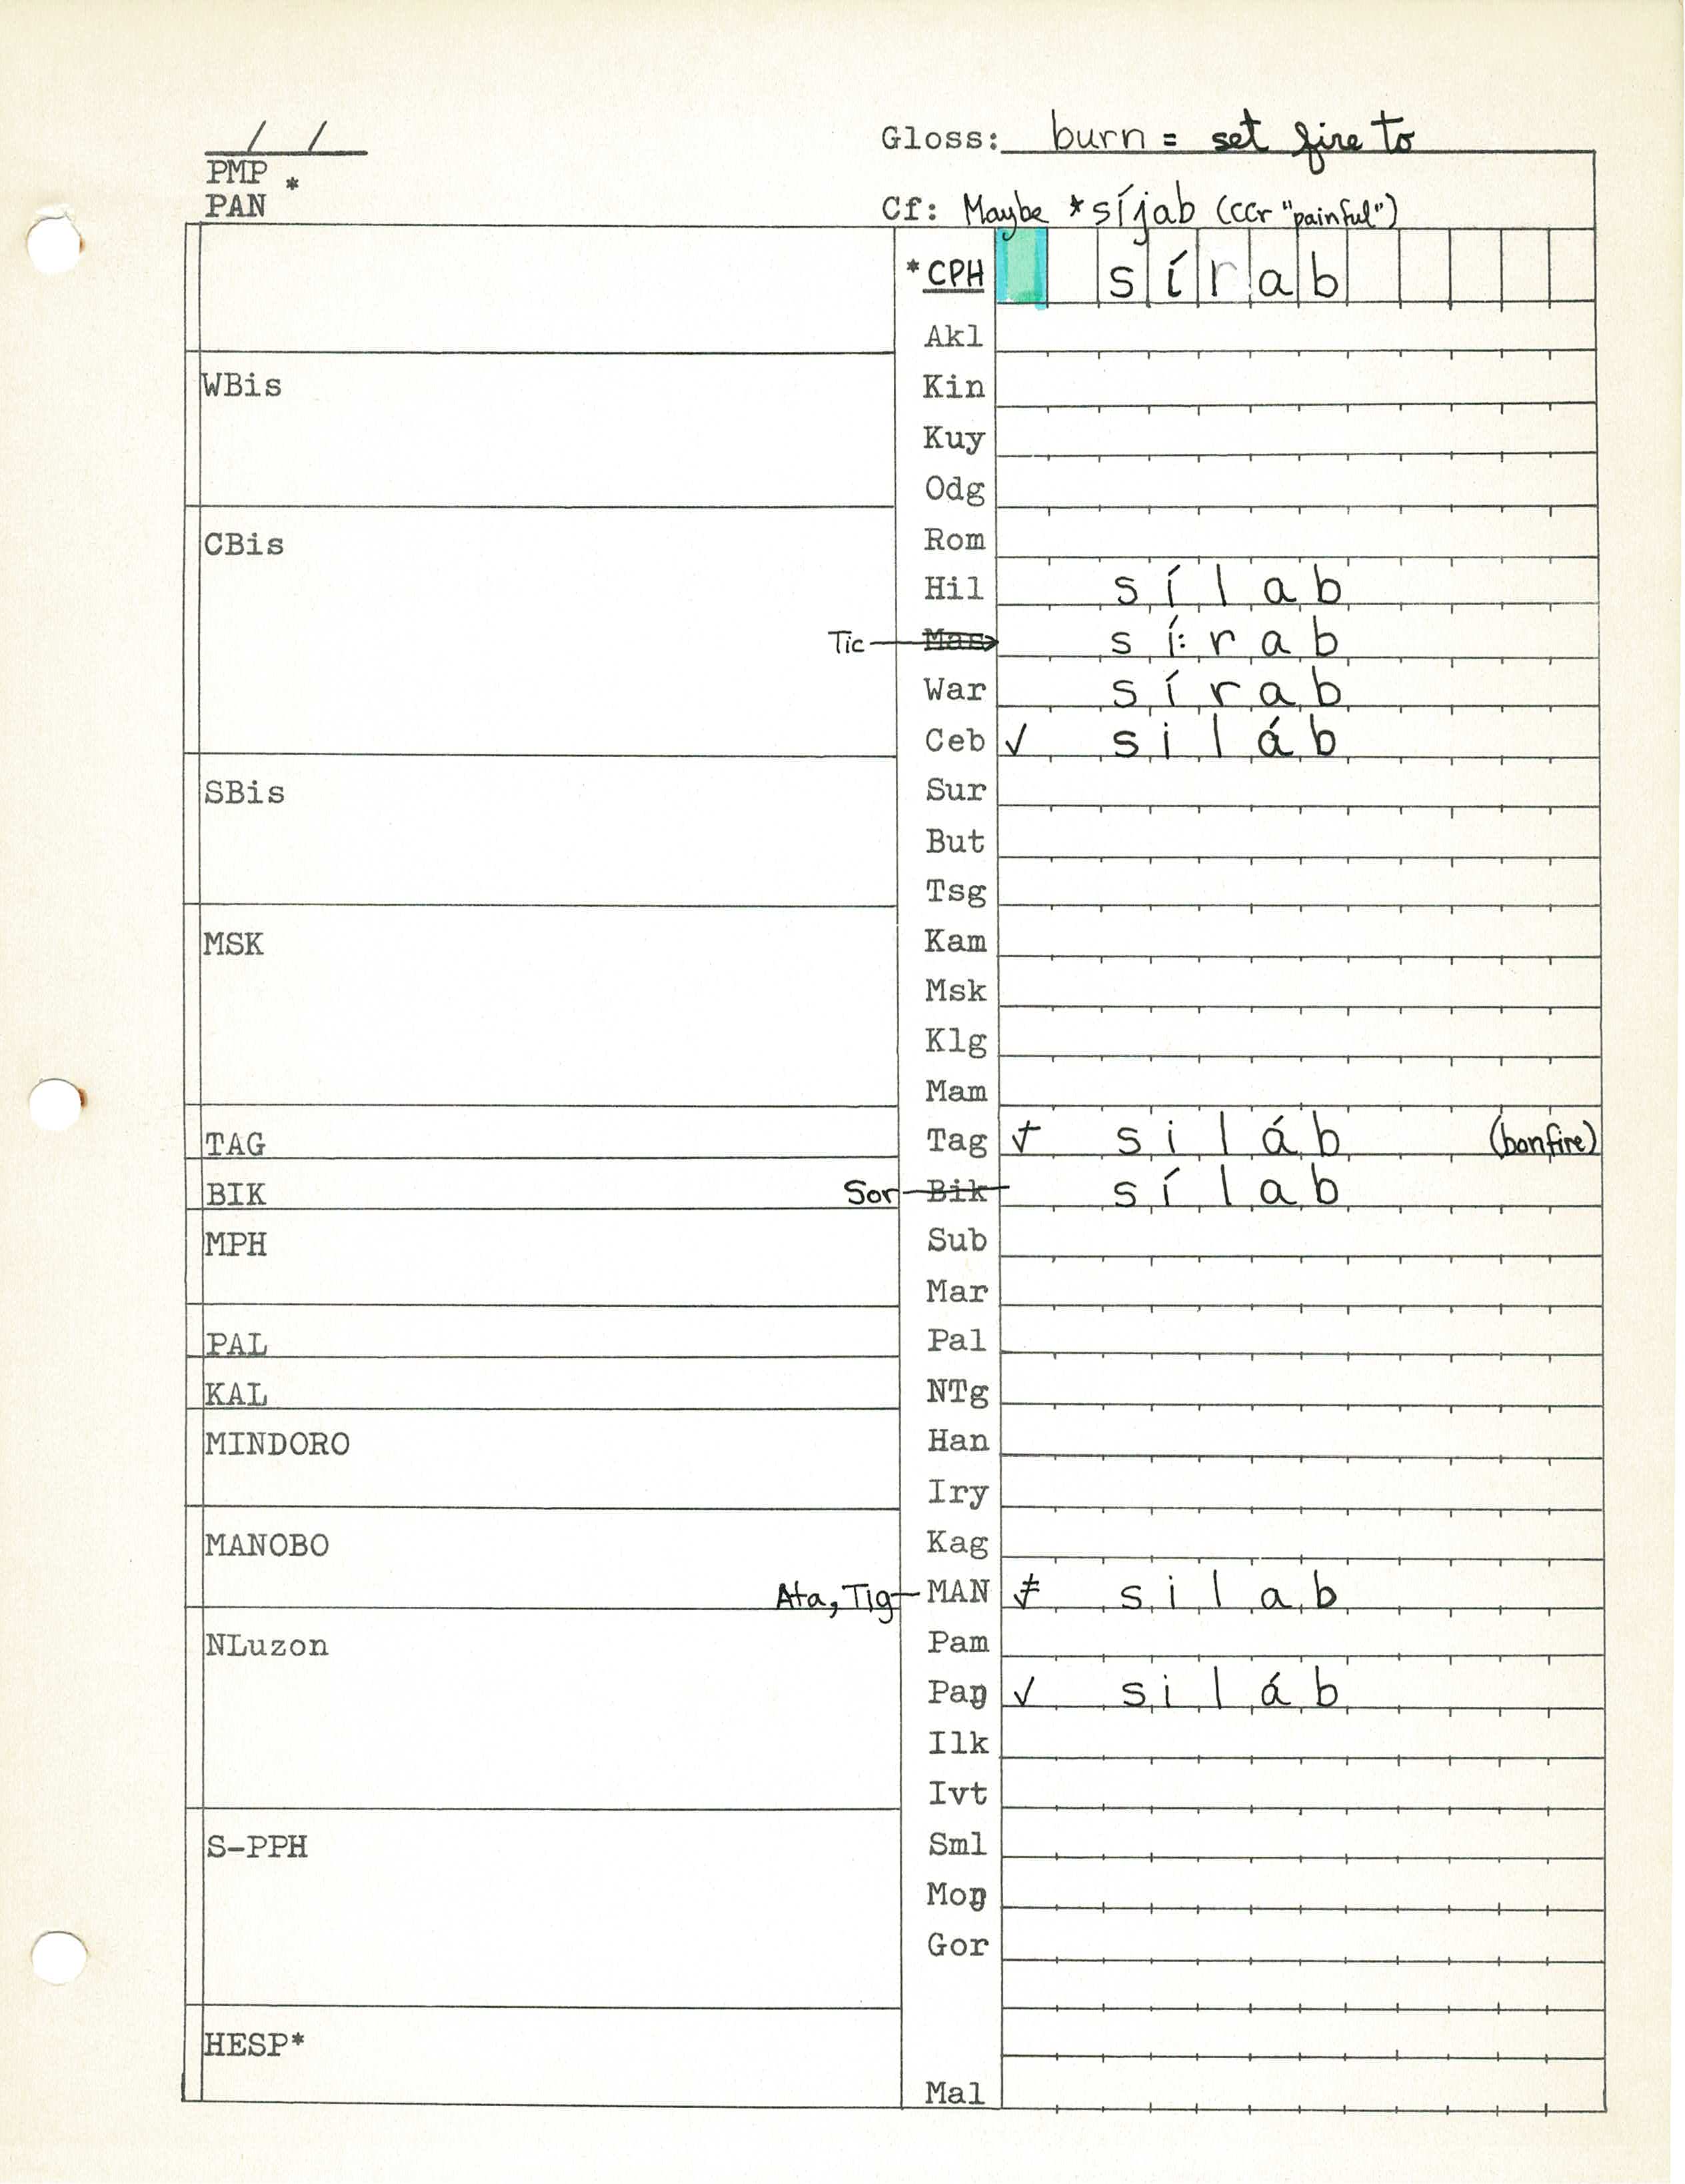 / /
Gloss: burn = set fire to
PMP *
PAN
Cf: Maybe *síjab (ccr "painful")
*CPH sírab
Akl
WBis
Kin
Kuy
Odg
CBis
Rom
Hil sílab
Tic Mas sí:rab
War sírab
Ceb ✓ siláb
SBis
Sur
But
Tsg
MSK
Kam
Msk
Klg
Mam
TAG
Tag ✓ siláb (bonfire)
BIK
Sor Bik sílab
MPH
Sub
Mar
PAL
Pal
KAL
NTg
MINDORO
Han
Iry
MANOBO
Kag
Ata, Tig MAN ✓ silab
NLuzon
Pam
Paŋ ✓ siláb
Ilk
Ivt
S-PPH
Sml
Moŋ
Gor
HESP*
Mal